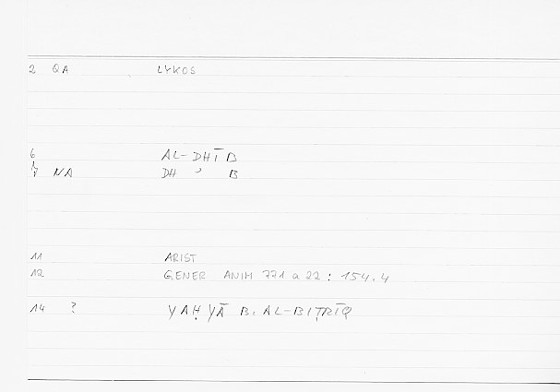 2 QA LYKOS
6 AL-DHĪB
NA DH ʾ B
11 ARIST
12 GENER ANIM 771 a 22 : 154.4
14 ? YAḤYĀ B. AL-BIṬRĪQ